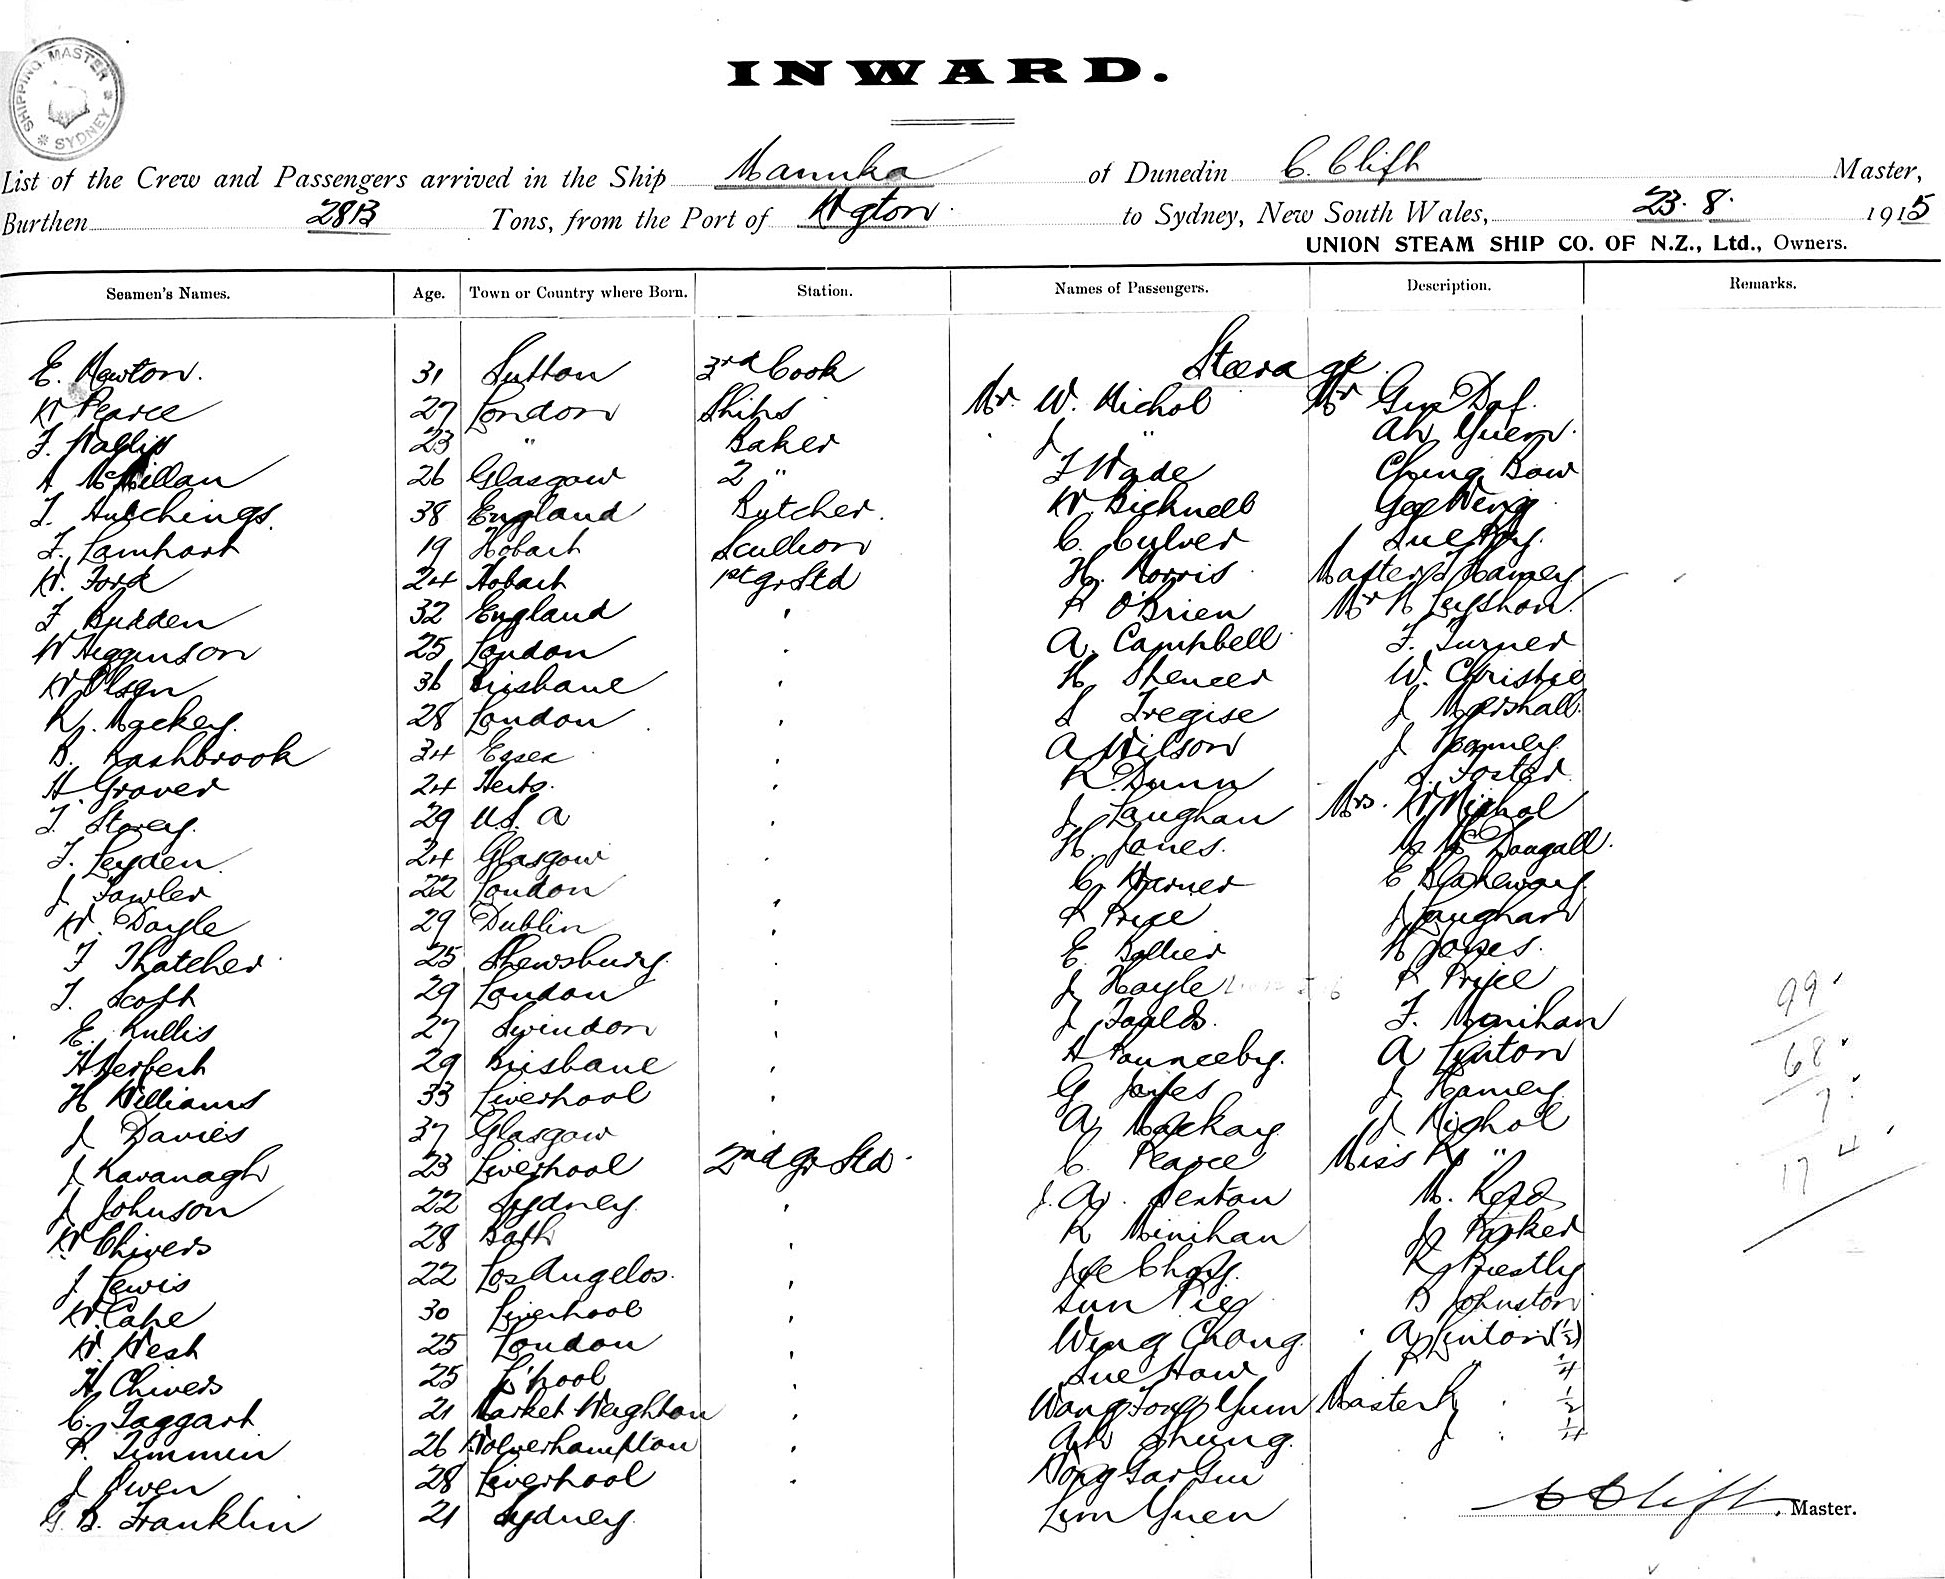 SHIPPING MASTER
SYDNEY
INWARD.
List of the Crew and Passengers arrived in the Ship Manuka of Dunedin C. Clift Master,
Burthen 2813 Tons, from the Port of Wgton to Sydney, New South Wales, 23. 8. 1915
UNION STEAM SHIP CO. OF N.Z., Ltd., Owners.
Seamen's Names. Age. Town or Country where Born. Station. Names of Passengers. Description. Remarks.
Steerage
E. Newton. 31 Sutton 3rd Cook
W Pearce 27 London Ships Mr. W. Nichol Mr
F. Wallis 23 " Baker J " Ah Yuen.
A McMillan 26 Glasgow 2 " F Wade Ching Bow
T. Hutchings. 38 England Butcher. W Bicknell Gee Weng
F. Lamhart 19 Hobart Scullion C. Culver Sue
W. Ford 24 Hobart 1st Gr Std H. Norris Master
F Budden 32 England ' P O'Brien Mr N Leyshon.
W Higginson 25 London ' A. Campbell F. Turner
W Olsen 36 Brisbane ' H. Spencer W. Christie
N. Mackey. 28 London ' S Tregise J Marshall.
B. Rashbrook 34 Essex ' A Wilson J Hamey.
H Grover 24 Herts. ' R. Dunn S. Foster
T. Storey. 29 U.S.A ' J Laughan Mrs. W Nichol
T. Leyden. 24 Glasgow ' H. Jones. M McDougall.
J Fowler 22 London ' C. Warner E Blakeway.
W. Doyle 29 Dublin ' P Price J Laughan
F Thatcher 25 Shewsbury. ' E. Bollier H Jones.
T. Scott 29 London ' J Hoyle P Price
E. Rullis 27 Swindon ' J Faulds. F. Minihan
H Herbert 29 Brisbane ' H Pounceby. A Linton
H Williams 33 Liverpool ' G. J. Hamey
J Davies 37 Glasgow ' A. Mackay J Nichol
J Kavanagh 23 Liverpool 2nd Gr Std. C. Pearce Miss R "
J Johnson 22 Sydney ' J. A. Sexton M.
W Chivers 28 Bath ' R Minihan J Parker
J Lewis 22 Los Angelos. ' Joe R Priestly
W. Cape 30 Liverpool ' Sun B Johnston
W. West 25 London ' Wing Chong A Linton (1/2)
H Chivers 25 L'pool ' Sue How P " 1/4
C. Taggart 21 Market Weighton ' Wong Fong Yum Master R 1/2
P. Timmin 26 Wolverhampton ' Ah Shung. J 1/4
J Owen 28 Liverpool ' Wong Gar Gin
G. B. Franklin 21 Sydney. Lim Yuen
99
68
7
4
17
C Clift. Master.